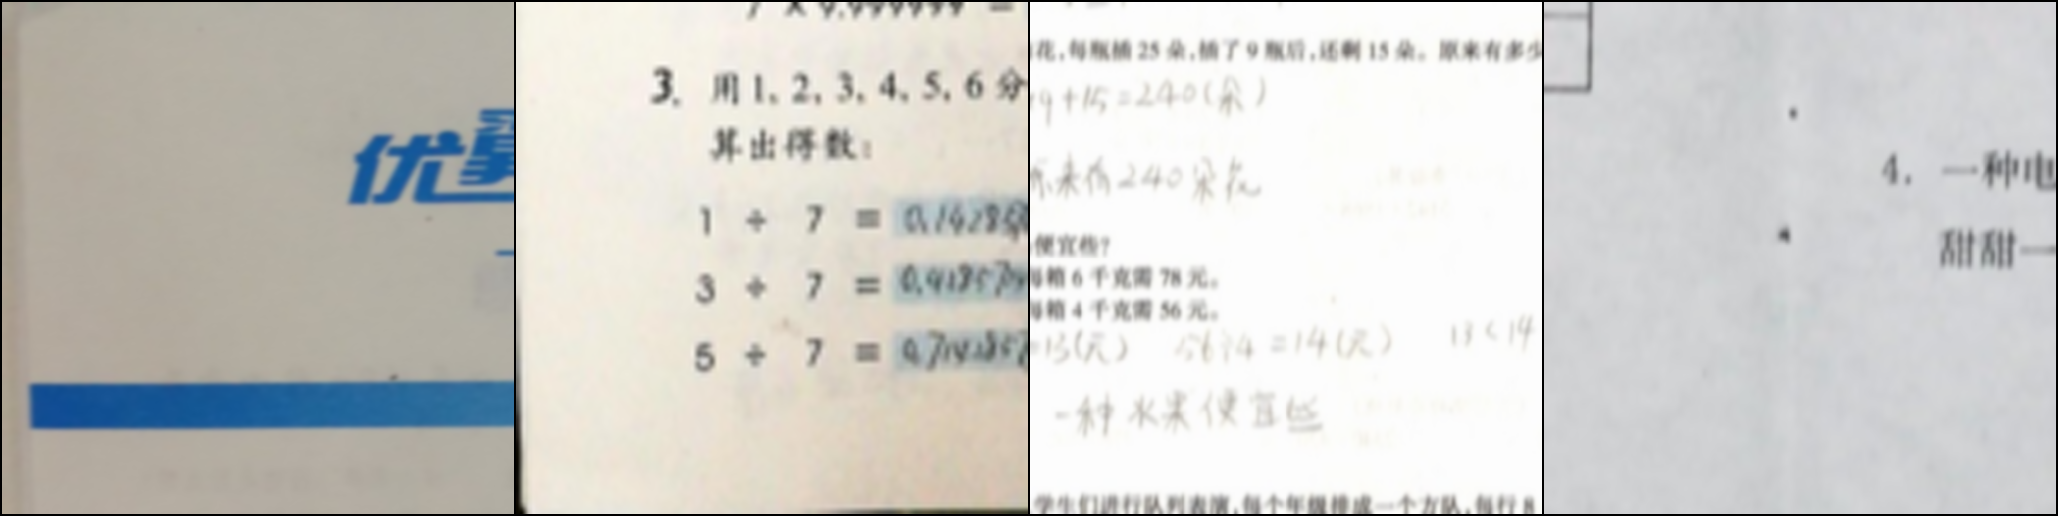 优翼
7 × 9.999999 =
3. 用 1, 2, 3, 4, 5, 6 分
算出得数:
1 ÷ 7 = 0.14285
3 ÷ 7 = 0.42857
5 ÷ 7 = 0.714285
花,每瓶插 25 朵,插了 9 瓶后,还剩 15 朵。原来有多少
9+15=240(朵)
原来有240朵花
便宜些?
每箱 6 千克需 78 元。
每箱 4 千克需 56 元。
=13(元) 56÷4=14(元) 13<14
一种水果便宜些
学生们进行队列表演,每个年级排成一个方队,每行 8
4. 一种电
甜甜一